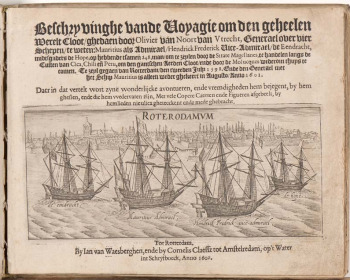 Beschryvinghe vande Voyagie om den geheelen
Werelt Cloot ghedaen door Olivier van Noort van Vtrecht, Generael over vier
Schepen, te weten Mauritius als Admirael, Hendrick Frederick Vice-Admirael, de Eendracht,
ende de Hope, op hebbende tsamen 248. man om te zeylen door de Strate Magellanes te handelen langs de
Custen van Cica, Chili en Peru, om den gantschen Aerden Cloot ende door de Molucques wederom thuys te
comen. Te zeyl gegaen van Rotterdam den tweeden July 1598. Ende den Generael met
het Schip Mauritius is alleen weder ghekeert in Augusto Anno 1601.
Daer in dat vertelt wort zyne wonderlijcke avontueren, ende vreemdigheden hem bejegent, by hem
ghesien, ende die hem wedervaren zijn, Met vele Copere Caerten ende Figueren afgebeelt, by
hemlieden nieulicx geteeckent ende mede ghebracht.
ROTERODAMVM
Mauritius Admirael
Hendrick Fredrick vice admirael
Ter Rotterdam,
By Ian van Waesberghen, ende by Cornelis Claessz tot Amstelredam, op't Water
int Schryf-boeck, Anno 1602.